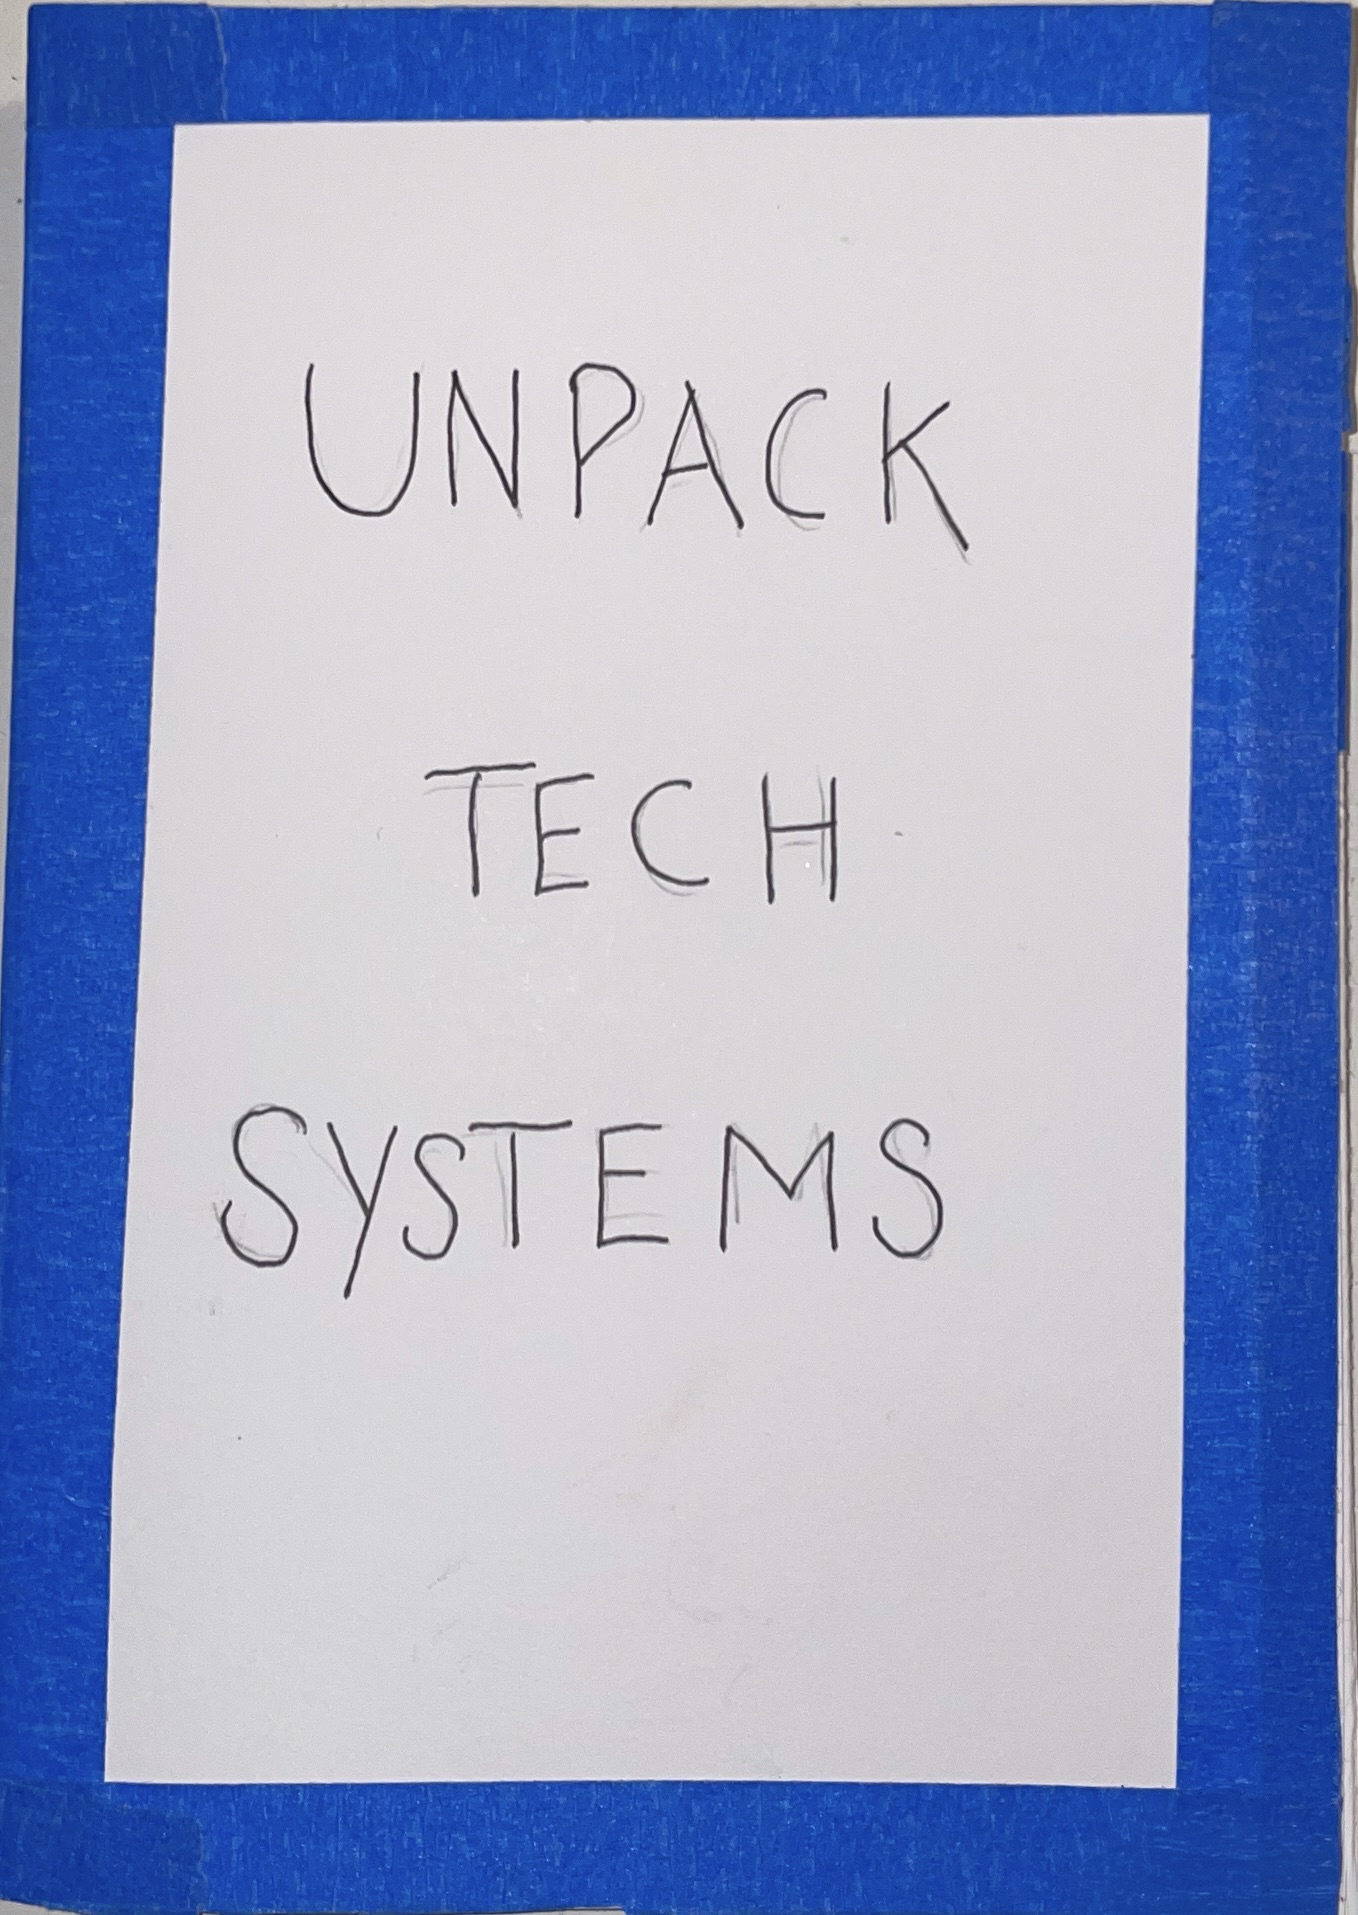 UNPACK
TECH
SYSTEMS